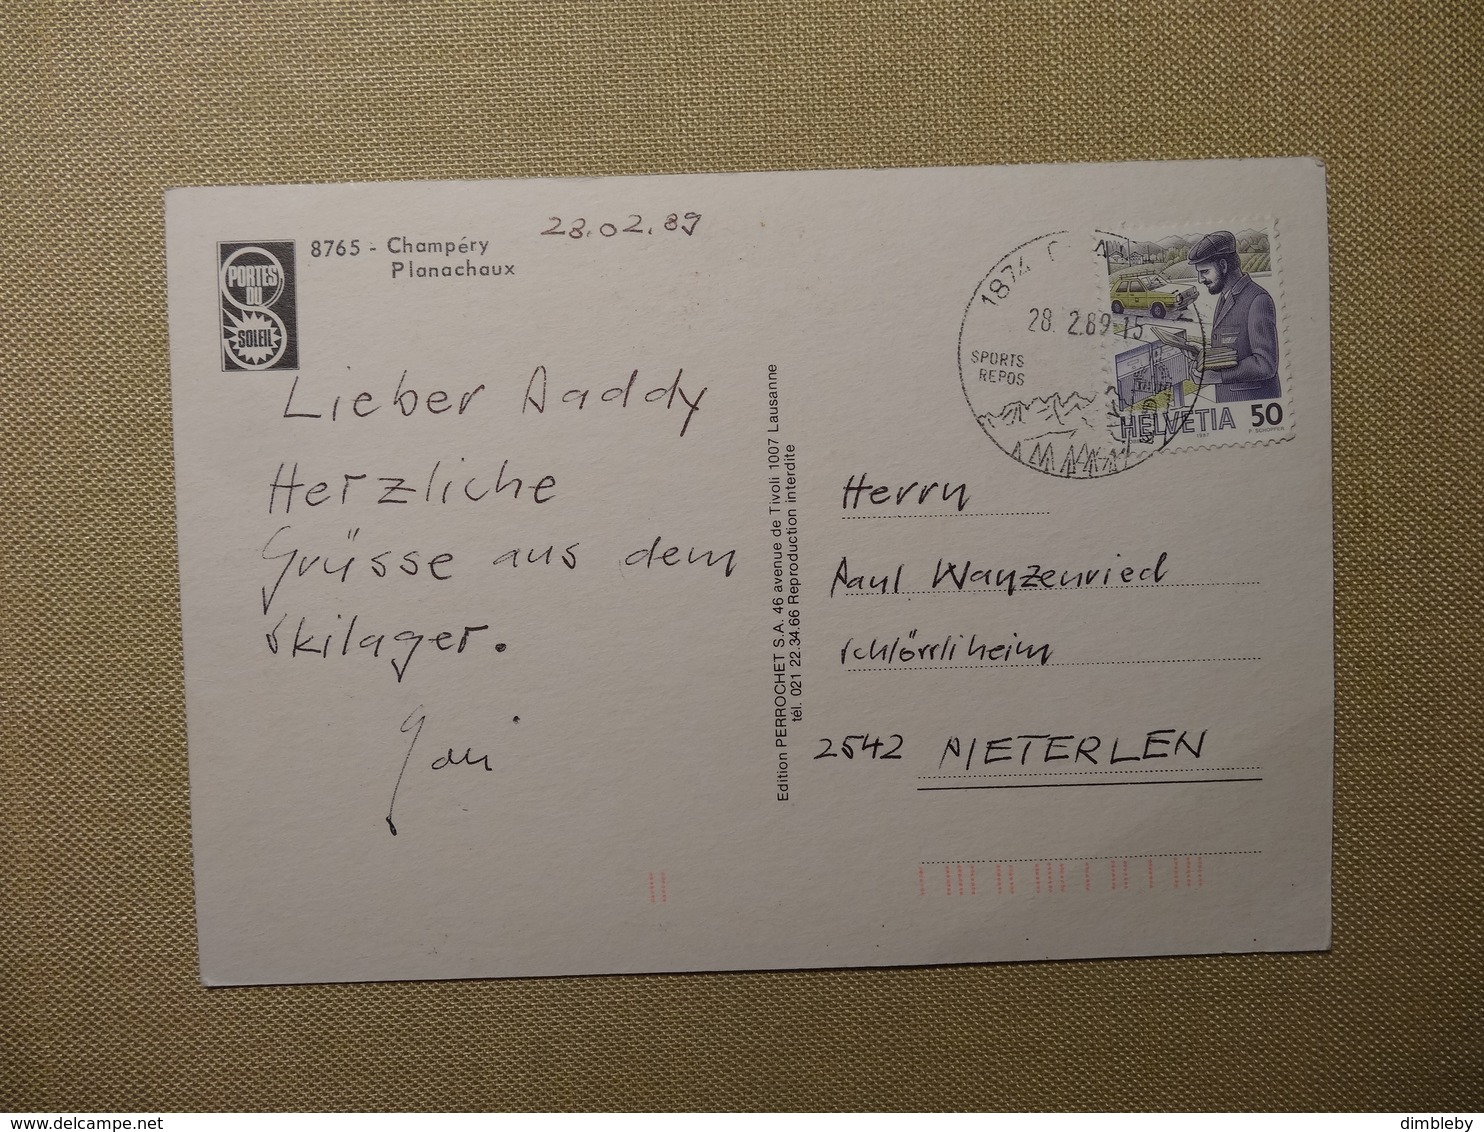 28.02.89
PORTES
DU
SOLEIL
8765 - Champéry
Planachaux
Lieber Daddy
Herzliche
Grüsse aus dem
Skilager.
Edition PERROCHET S.A. 46 avenue de Tivoli 1007 Lausanne
tél. 021 22.34.66 Reproduction interdite
1874
28. 2.89-15
SPORTS
REPOS
HELVETIA 50
1987
Herrn
Paul Wanzenried
Schlössliheim
2542 PIETERLEN
delcampe.net
dimbleby